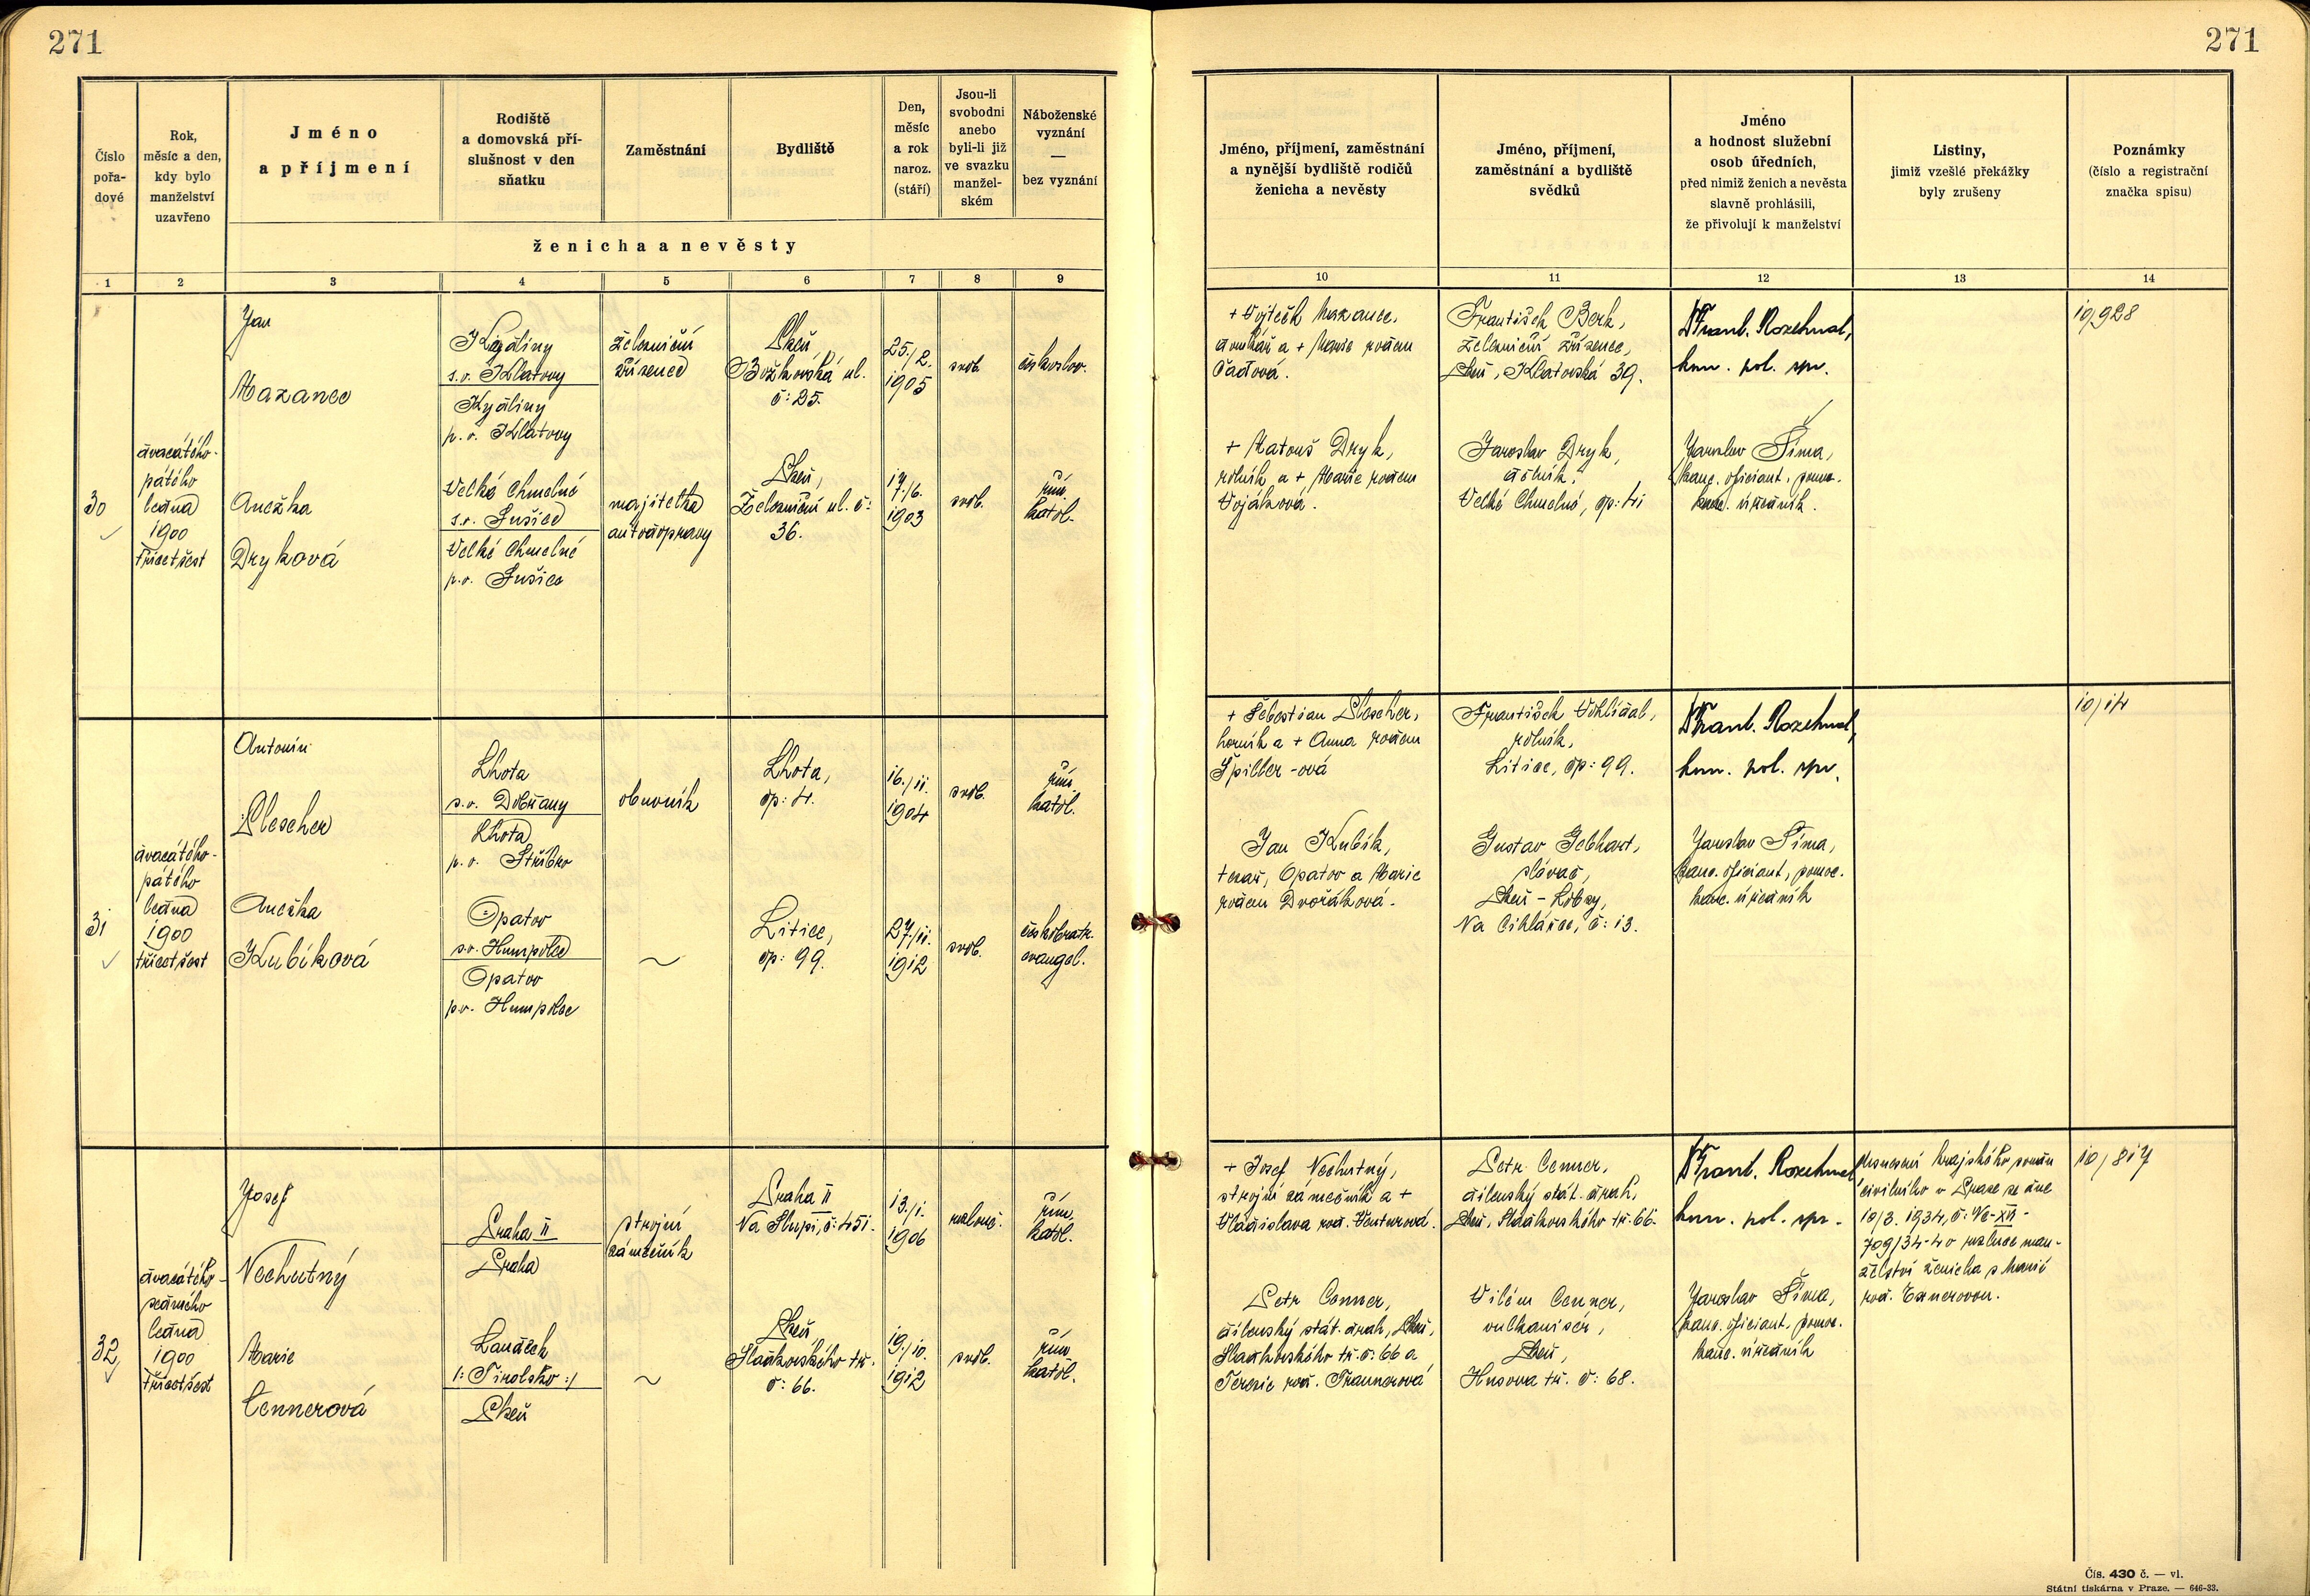 271
271
Číslo
pořa-
dové
Rok,
měsíc a den,
kdy bylo
manželství
uzavřeno
Jméno
a příjmení
Rodiště
a domovská pří-
slušnost v den
sňatku
Zaměstnání
Bydliště
Den,
měsíc
a rok
naroz.
(stáří)
Jsou-li
svobodni
anebo
byli-li již
ve svazku
manžel-
ském
Náboženské
vyznání
—
bez vyznání
ženicha a nevěsty
Jméno, příjmení, zaměstnání
a nynější bydliště rodičů
ženicha a nevěsty
Jméno, příjmení,
zaměstnání a bydliště
svědků
Jméno
a hodnost služební
osob úředních,
před nimiž ženich a nevěsta
slavně prohlásili,
že přivolují k manželství
Listiny,
jimiž vzešlé překážky
byly zrušeny
Poznámky
(číslo a registrační
značka spisu)
1 2 3 4 5 6 7 8 9 10 11 12 13 14
30
dvacátého-
pátého
ledna
1900
třicetšest
Jan
Mazanec
Kydliny
s.o. Klatovy
Kydliny
p.o. Klatovy
železniční
zřízenec
Plzeň
Božkovská ul.
č: 25.
25./2.
1905
svob.
českoslov.
Anežka
Dryková
Velké Chmelné
s.o. Sušice
Velké Chmelné
p.o. Sušice
majitelka
autodopravy
Plzeň,
Železniční ul. č:
36.
17./6.
1903
svob.
řím.
katol.
+ Vojtěch Mazanec,
domkář a + Marie rozen
Čadová.
+ Matouš Dryk,
rolník a + Marie rozen
Vojáková.
František Berk,
železniční zřízenec,
Plzeň, Klatovská 39.
Jaroslav Dryk,
dělník,
Velké Chmelné, čp: 41
Dr Frant. Rozehnal,
kom. pol. spr.
Jaroslav Šíma,
kanc. oficiant, pomoc.
kanc. úředník.
10,928
31
dvacátého-
pátého
ledna
1900
třicetšest
Antonín
Plescher
Lhota
s.o. Dobřany
Lhota
p.o. Stříbro
obuvník
Lhota,
čp: 4.
16./11.
1904
svob.
řím.
katol.
Anežka
Kubíková
Opatov
s.o. Humpolec
Opatov
p.o. Humpolec
~
Litice,
čp: 99.
27./11.
1912
svob.
českobratr.
evangel.
+ Šebestian Plescher,
horník a + Anna rozen
Špiller-ová
Jan Kubík,
tesař, Opatov a Marie
rozen Dvořáková.
František Vohlídal,
rolník,
Litice, čp: 99.
Gustav Gebhart,
slévač,
Plzeň - Lobzy,
Na Cihlářce, č: 13.
Dr Frant. Rozehnal,
kom. pol. spr.
Jaroslav Šíma,
kanc. oficiant, pomoc.
kanc. úředník
10,14
32
dvacátého-
sedmého
ledna
1900
třicetšest
Josef
Nechutný
Praha II
Praha
strojní
zámečník
Praha II
Na Slupi, č: 451.
13./1.
1906
rozlouč.
řím.
katol.
Marie
Cennerová
Landeck
/: Tirolsko :/
Plzeň
~
Plzeň
Sladkovského tř.
č: 66.
19./10.
1912
svob.
řím.
katol.
+ Josef Nechutný,
strojní zámečník a +
Vladislava roz. Venturová.
Petr Cenner,
dílenský stát. drah, Plzeň,
Sladkovského tř. č: 66 a
Terezie roz. Traunerová
Petr Cenner,
dílenský stát. drah,
Plzeň, Sladkovského tř. 66.
Vilém Cenner,
vulkanisér,
Plzeň,
Husova tř. č: 68.
Dr Frant. Rozehnal,
kom. pol. spr.
Jaroslav Šíma,
kanc. oficiant, pomoc.
kanc. úředník
Usnesení krajského soudu
civilního v Praze ze dne
10/3. 1934, č: Nc-XII-
709/34-4 o rozluce man-
želství ženicha s Marií
roz.
10,817
Čís. 430 č. — vl.
Státní tiskárna v Praze. — 646-33.